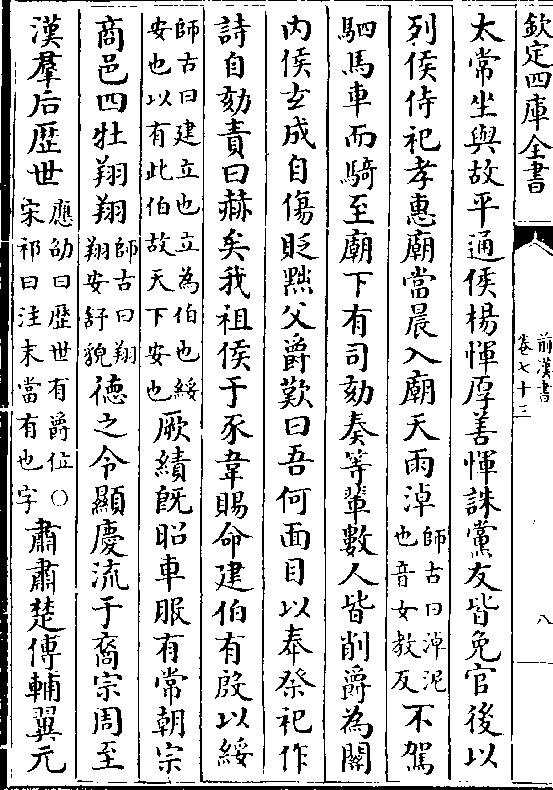 欽定四庫全書
前漢書
卷七十三
八
太常坐與故平通侯楊惲厚善惲誅黨友皆免官後以
列侯侍祀孝惠廟當晨入廟天雨淖師古曰淖泥也音女教反不駕
駟馬車而騎至廟下有司劾奏等輩數人皆削爵為關
内侯玄成自傷貶黜父爵歎曰吾何面目以奉祭祀作
詩自劾責曰赫矣我祖侯于豕韋賜命建伯有殷以綏
師古曰建立也立為伯也綏安也以有此伯故天下安也厥績既昭車服有常朝宗
商邑四牡翔翔師古曰翔翔安舒貌德之令顯慶流于裔宗周至
漢羣后歴世應劭曰歴世有爵位○宋祁曰注末當有也字肅肅楚傅輔翼元